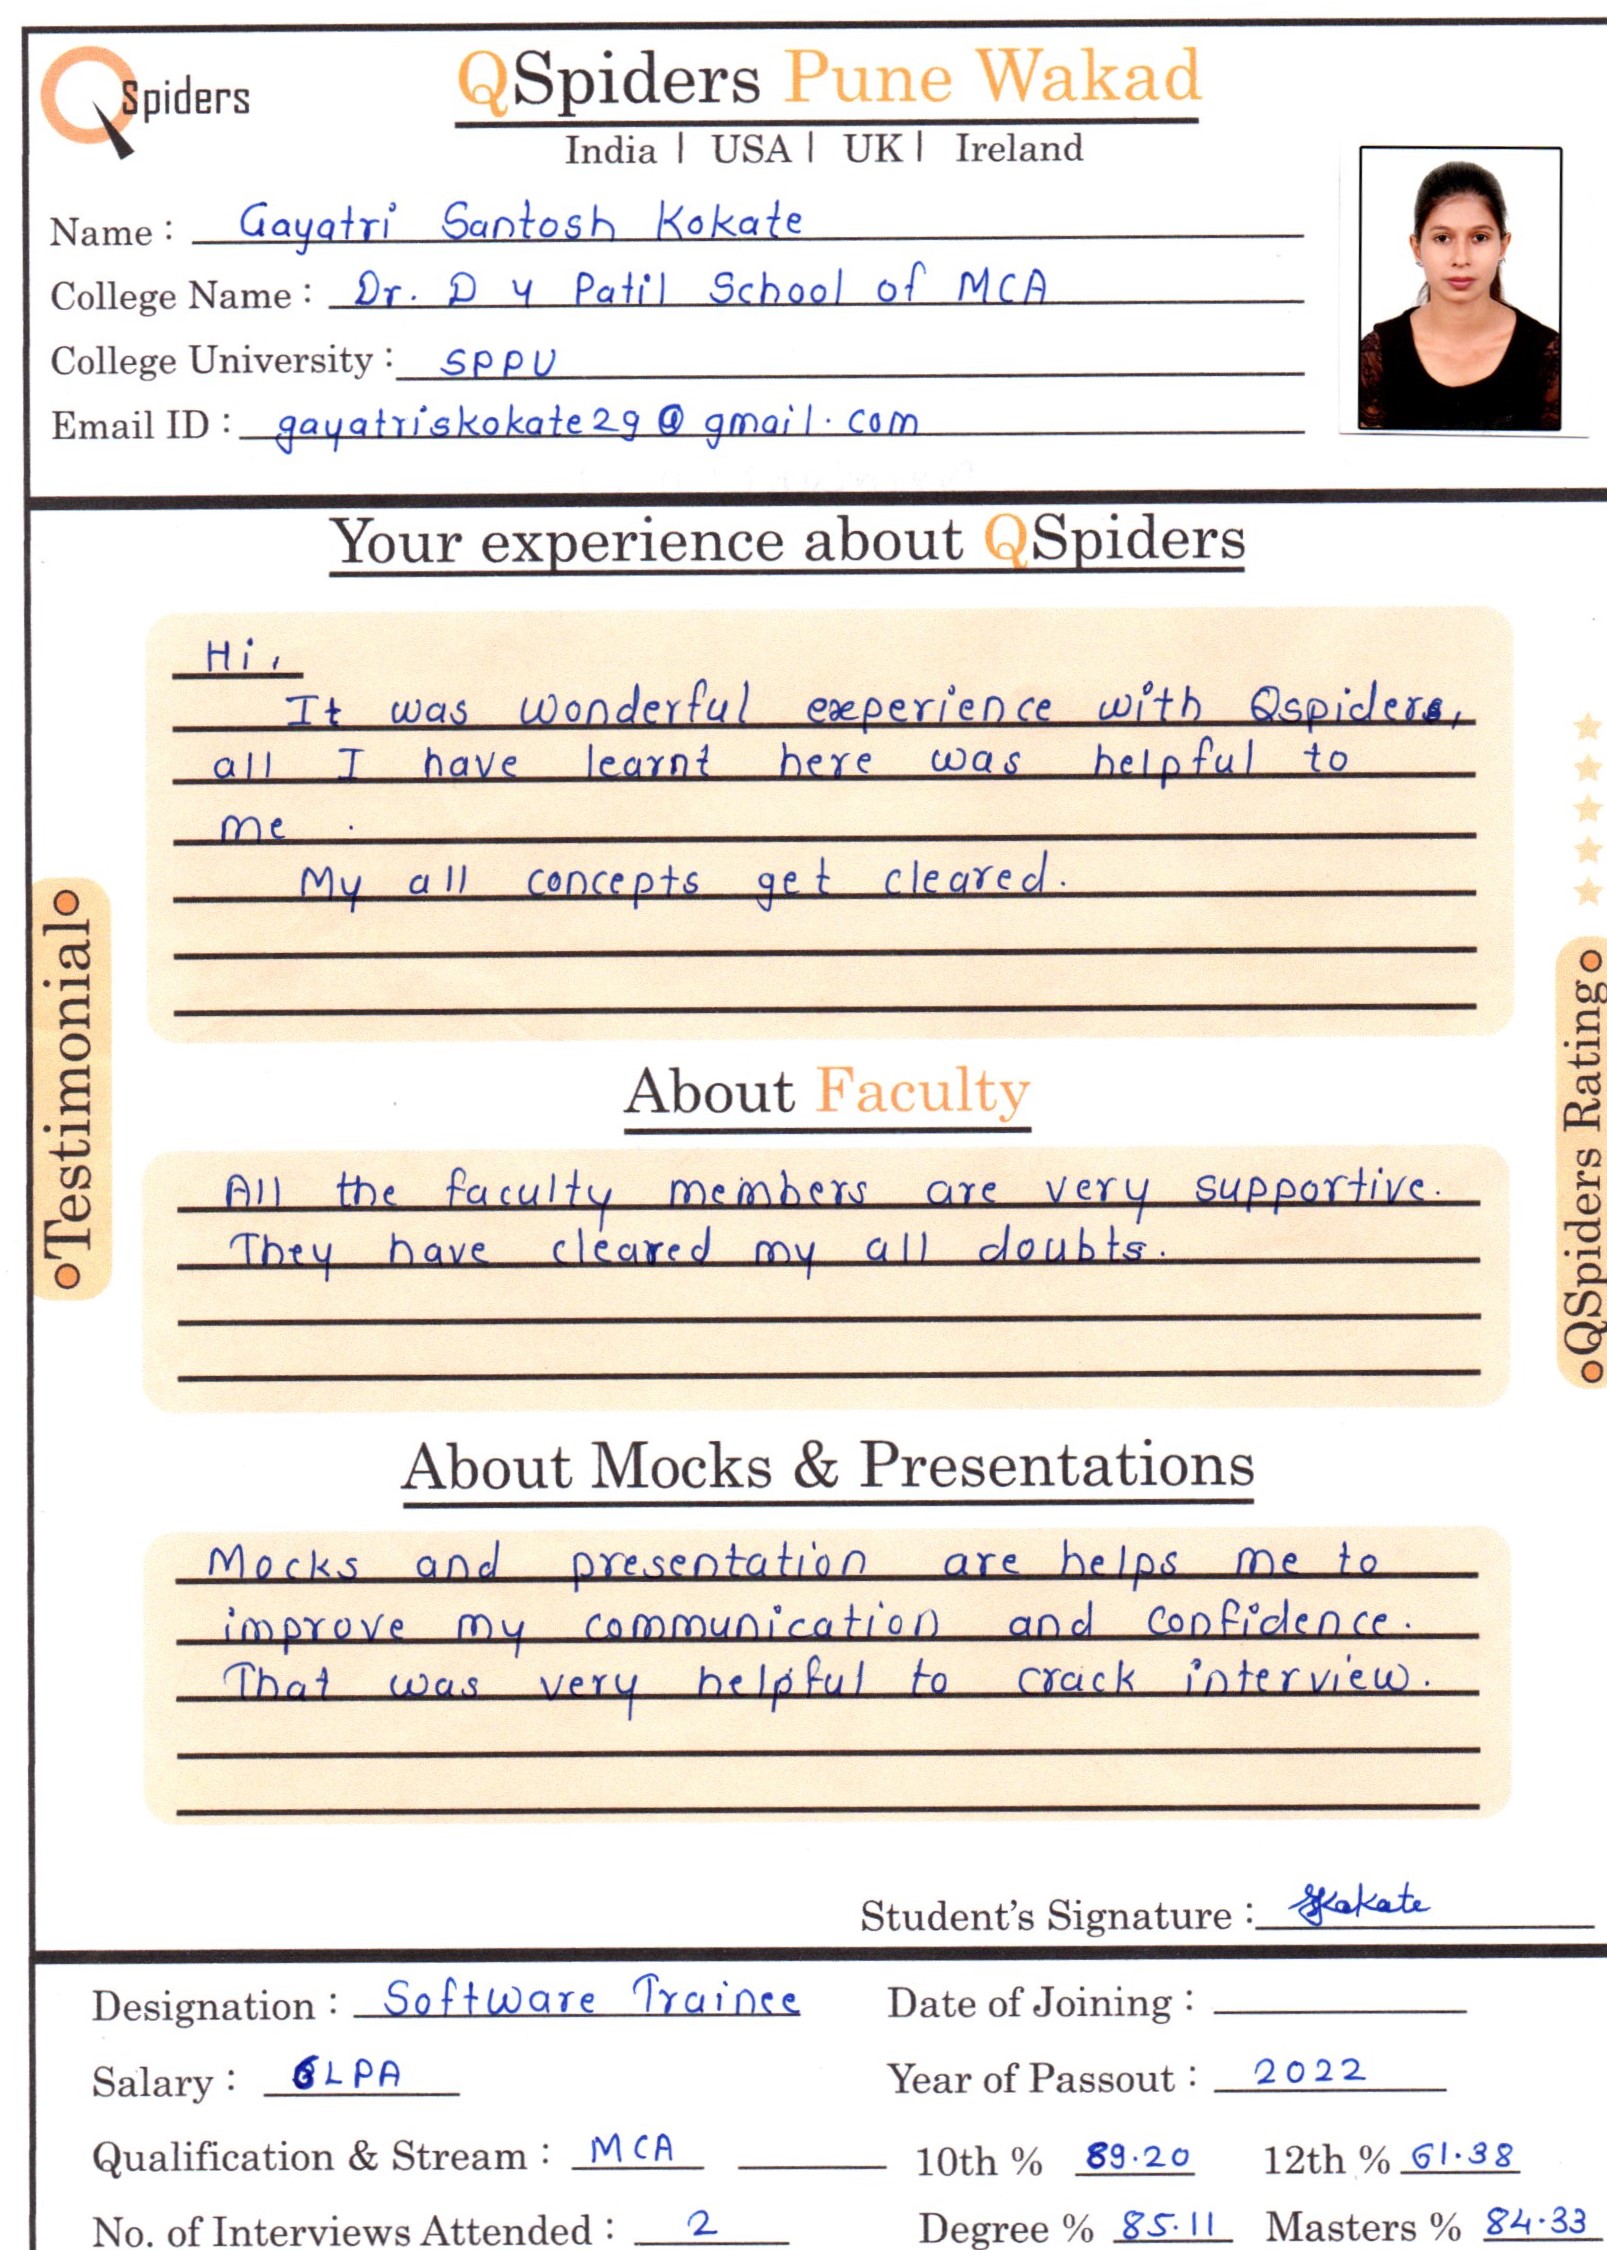 QSpiders
QSpiders Pune Wakad
India | USA | UK | Ireland
Name : Gayatri Santosh Kokate
College Name : Dr. D Y Patil School of MCA
College University : SPPU
Email ID : gayatriskokate29@gmail.com
Your experience about QSpiders
Hi,
It was wonderful experience with Qspiders,
all I have learnt here was helpful to
me .
My all concepts get cleared.
Testimonial
QSpiders Rating
About Faculty
All the faculty members are very supportive.
They have cleared my all doubts.
About Mocks & Presentations
Mocks and presentation are helps me to
improve my communication and confidence.
That was very helpful to crack interview.
Student's Signature : Kokate
Designation : Software Trainee Date of Joining :
Salary : 6LPA Year of Passout : 2022
Qualification & Stream : MCA 10th % 89.20 12th % 61.38
No. of Interviews Attended : 2 Degree % 85.11 Masters % 84.33